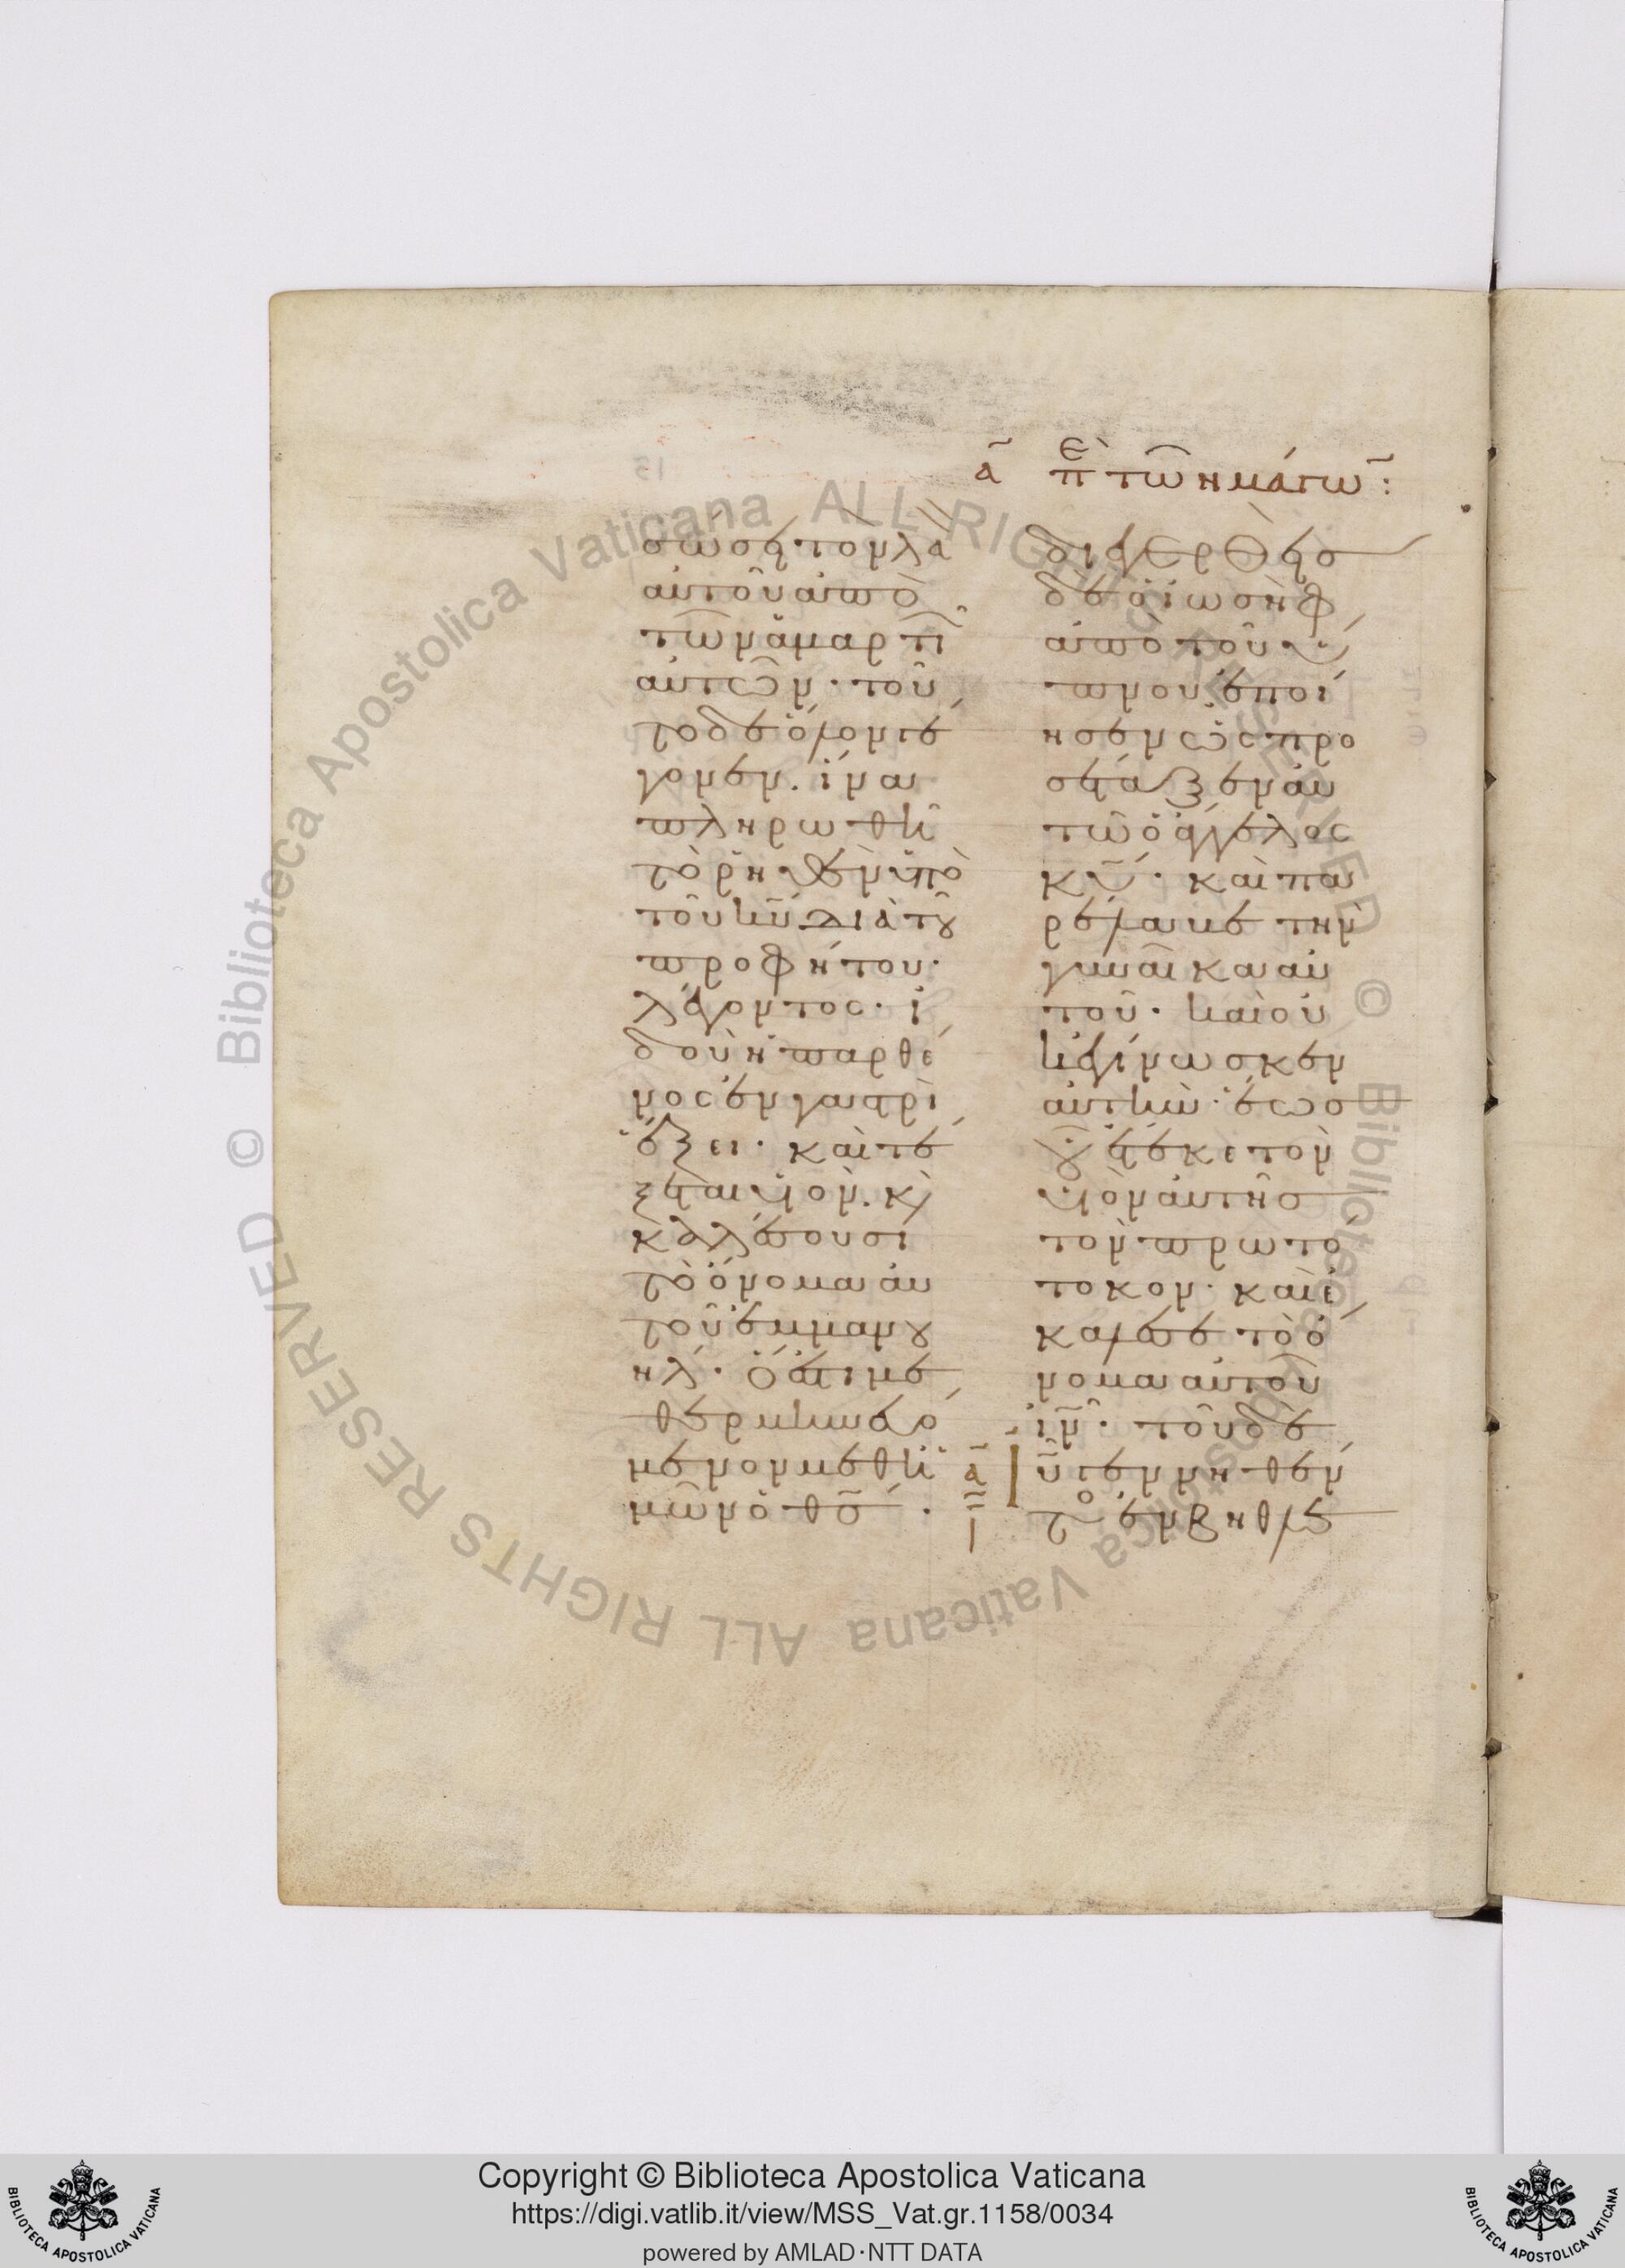 α̃ Πὲ τῶν μάγω̃:
σώσει τὸν λα
αὐτοῦ ἀπὸ
τῶν ἁμαρτι
αὐτῶν· τοῦ
το δὲ ὅλον γέ
γονεν. ἵνα
πληρωθῆ
τὸ ῥηθὲν ὑπὸ
τοῦ κ̅υ̅ διὰ τοῦ
προφήτου·
λέγοντος· ἰ
δοὺ ἡ παρθέ
νος ἐν γαστρὶ
ἕξει· καὶ τέ
ξεται υἱόν. κ̀
καλέσουσι
τὸ ὄνομα αὐ
τοῦ ἐμμανου
ήλ· ὅ ἐστι με
θερμηνευό
μενον μεθ ἡ
μῶν ὁ θ̅ς̅·
διεγερθεὶς
δὲ ὁ ἰωσὴφ
ἀπὸ τοῦ ὕ
πνου ἐποί
ησεν ὡς προ
σέταξεν αὐ
τῶ ὁ ἄγγελος
κ̅υ̅· καὶ πα
ρέλαβε τὴν
γυναῖκα αὐ
τοῦ· καὶ οὐ
κ ἐγίνωσκεν
αὐτὴν· ἕως
οὗ ἔτεκε τὸν
υἱὸν αὐτῆς
τὸν πρωτό
τοκον· καὶ ἐ
κάλεσε τὸ ὄ
νομα αὐτοῦ
ι̅ν̅· τοῦ δὲ
α̃ ι̅υ̅ γεννηθέν
τος ἐν βηθλε
Copyright © Biblioteca Apostolica Vaticana
https://digi.vatlib.it/view/MSS_Vat.gr.1158/0034
powered by AMLAD·NTT DATA
BIBLIOTECA APOSTOLICA VATICANA
BIBLIOTECA APOSTOLICA VATICANA
Biblioteca Apostolica Vaticana ALL RIGHTS RESERVED ©
Biblioteca Apostolica Vaticana ALL RIGHTS RESERVED ©